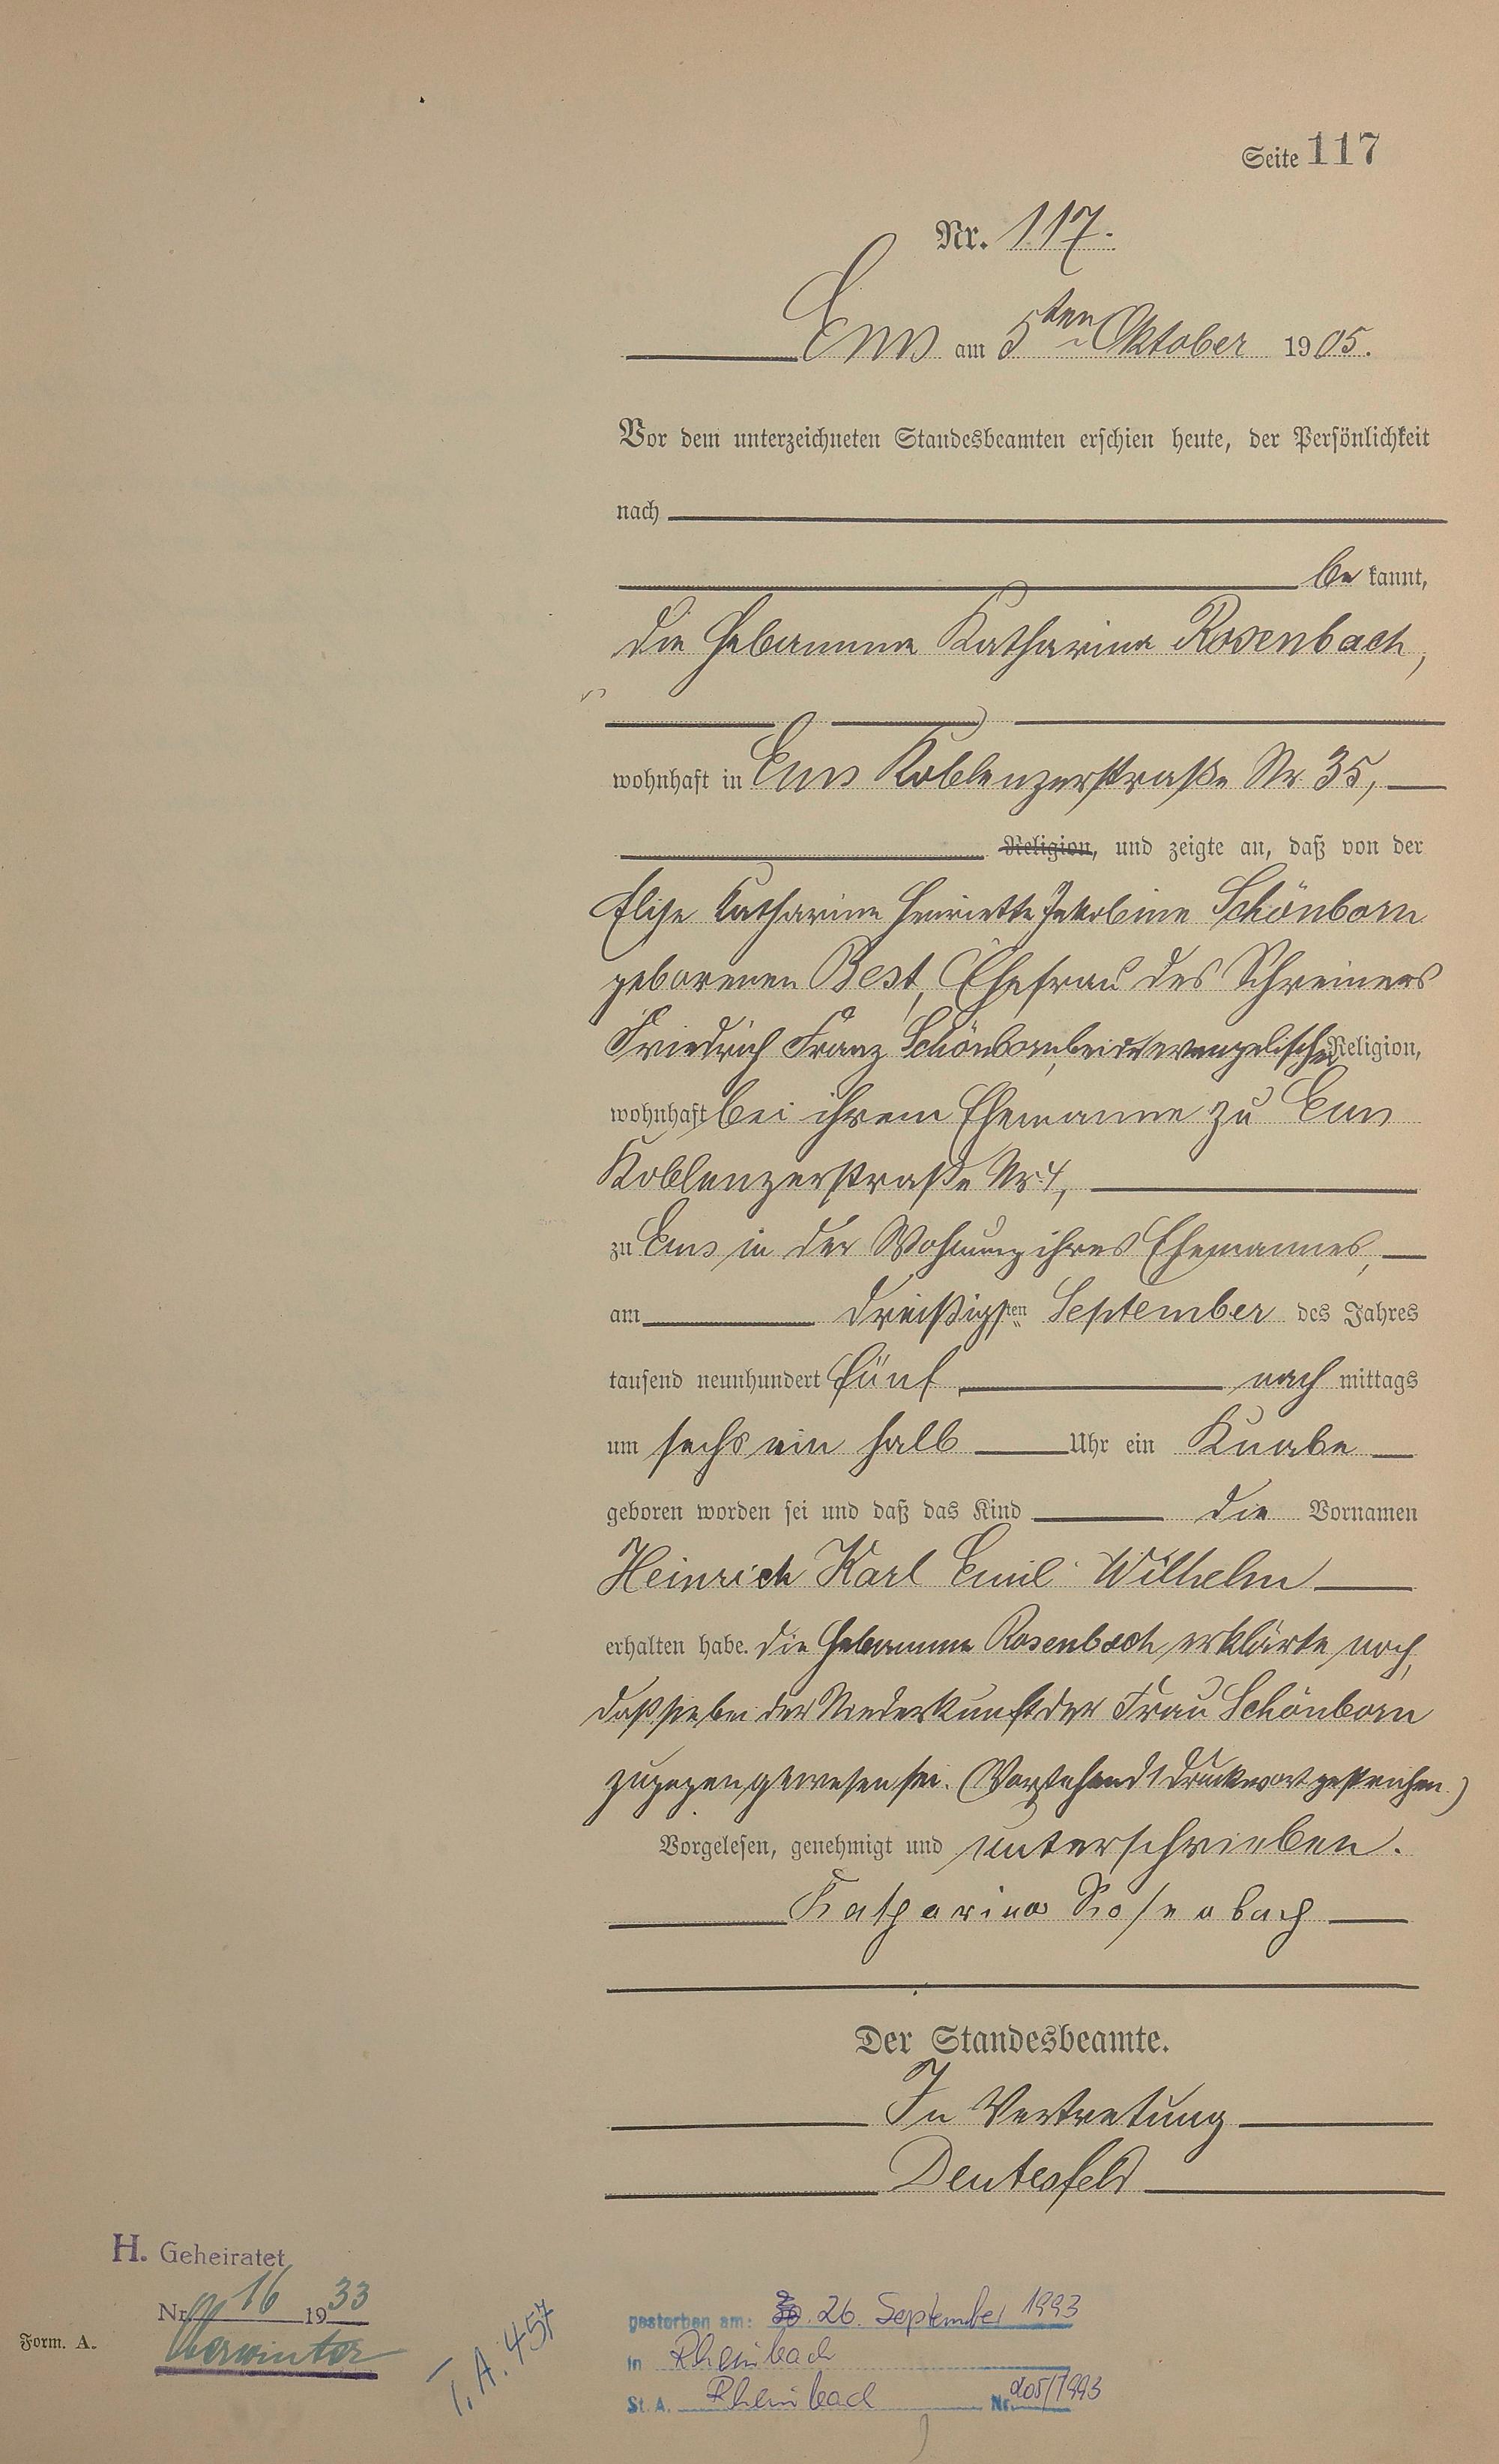 Seite 117
Nr. 117.
Ems am 5ten Oktober 1905.
Vor dem unterzeichneten Standesbeamten erschien heute, der Persönlichkeit
nach
be kannt,
die Hebamme Katharina Rosenbach,
wohnhaft in Ems Koblenzerstraße Nr. 35,
Religion, und zeigte an, daß von der
Elise Katharine Henriette Jakobine Schönborn
geborenen Best, Ehefrau des Schreiners
Friedrich Franz Schönborn, beide evangelischer Religion,
wohnhaft bei ihrem Ehemanne zu Ems
Koblenzerstraße Nr. 4,
zu Ems in der Wohnung ihres Ehemannes,
am dreißigsten September des Jahres
tausend neunhundert fünf nach mittags
um sechs ein halb Uhr ein Knabe
geboren worden sei und daß das Kind die Vornamen
Heinrich Karl Emil Wilhelm
erhalten habe. Die Hebamme Rosenbach erklärte noch,
daß sie bei der Niederkunft der Frau Schönborn
zugegen gewesen sei. (Vorstehend 1 Druckwort gestrichen.)
Vorgelesen, genehmigt und unterschrieben.
Katharina Rosenbach
Der Standesbeamte.
In Vertretung
Deutesfeld
H. Geheiratet
Nr. 16 1933
Oberwinter
Form. A.
T. A. 457
gestorben am: 26. September 1993
in Rheinbach
St. A. Rheinbach Nr. 205/1993